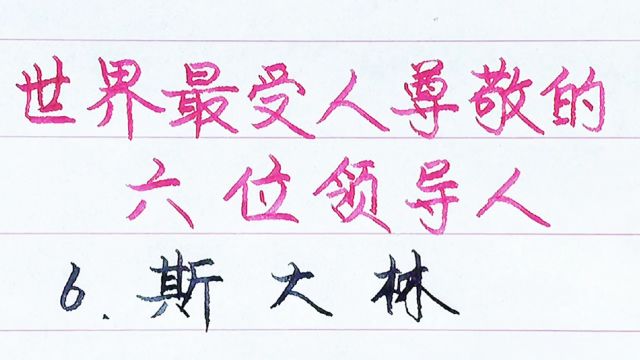 世界最受人尊敬的
六位领导人
6.斯大林